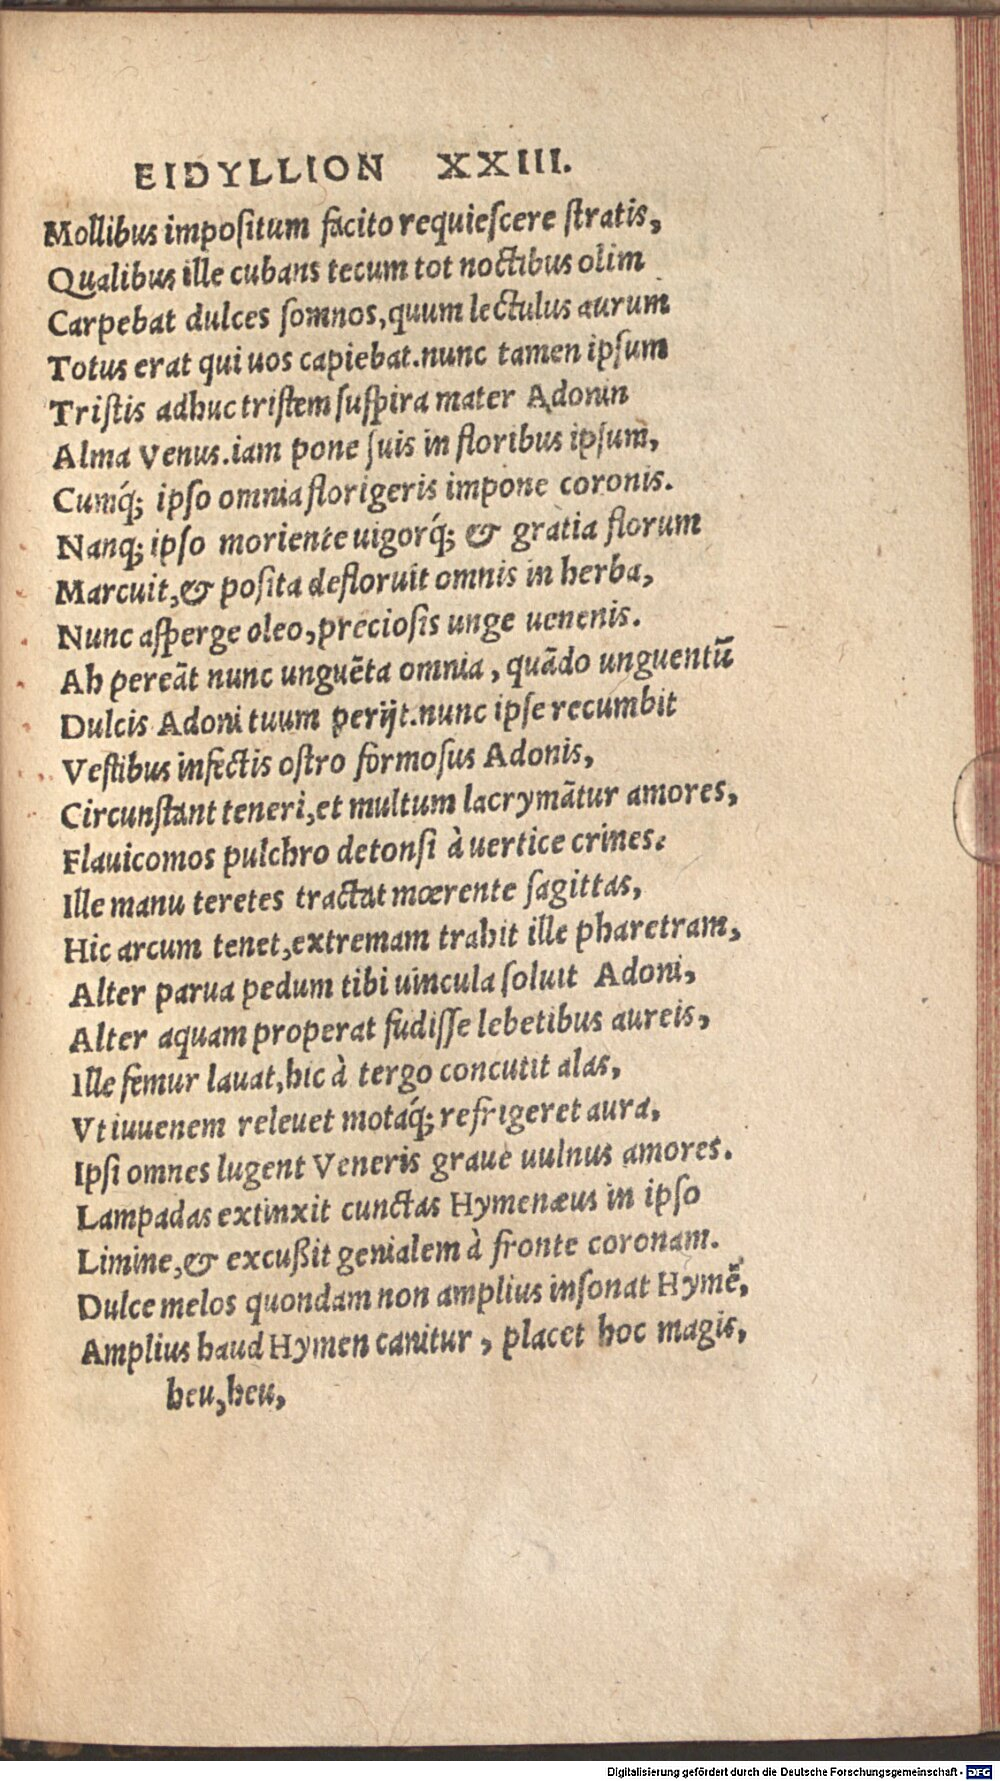 EIDYLLION XXIII.
Mollibus impoſitum facito requieſcere ſtratis,
Qualibus ille cubans tecum tot noctibus olim
Carpebat dulces ſomnos, quum lectulus aurum
Totus erat qui uos capiebat. nunc tamen ipſum
Triſtis adhuc triſtem ſuſpira mater Adonin
Alma Venus. iam pone ſuis in floribus ipſum,
Cumq́; ipſo omnia florigeris impone coronis.
Nanq; ipſo moriente uigorq́; & gratia florum
Marcuit, & poſita defloruit omnis in herba,
Nunc aſperge oleo, precioſis unge uenenis.
Ah pereāt nunc unguēta omnia, quādo unguentū
Dulcis Adoni tuum perijt. nunc ipſe recumbit
Veſtibus infectis oſtro formoſus Adonis,
Circunſtant teneri, et multum lacrymātur amores,
Flauicomos pulchro detonſi à uertice crines.
Ille manu teretes tractat mœrente ſagittas,
Hic arcum tenet, extremam trahit ille pharetram,
Alter parua pedum tibi uincula ſoluit Adoni,
Alter aquam properat fudiſſe lebetibus aureis,
Ille femur lauat, hic à tergo concutit alas,
Vt iuuenem releuet motaq́; refrigeret aura,
Ipſi omnes lugent Veneris graue uulnus amores.
Lampadas extinxit cunctas Hymenæus in ipſo
Limine, & excußit genialem à fronte coronam.
Dulce melos quondam non amplius inſonat Hymē,
Amplius haud Hymen canitur, placet hoc magis,
heu, heu,
Digitalisierung gefördert durch die Deutsche Forschungsgemeinschaft - DFG